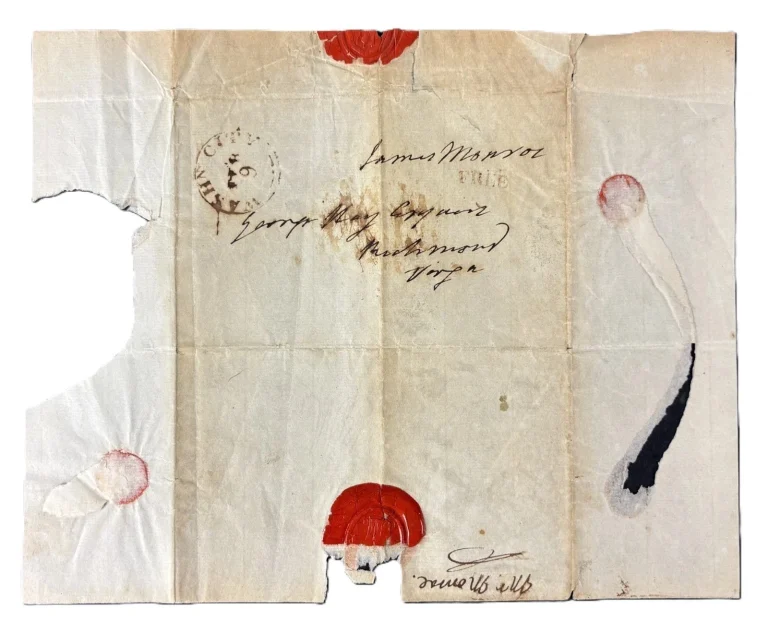 James Monroe
FREE
George Hay Esquire
Richmond
Virga
WASHN CITY
6
MAY
Mr. Monroe.